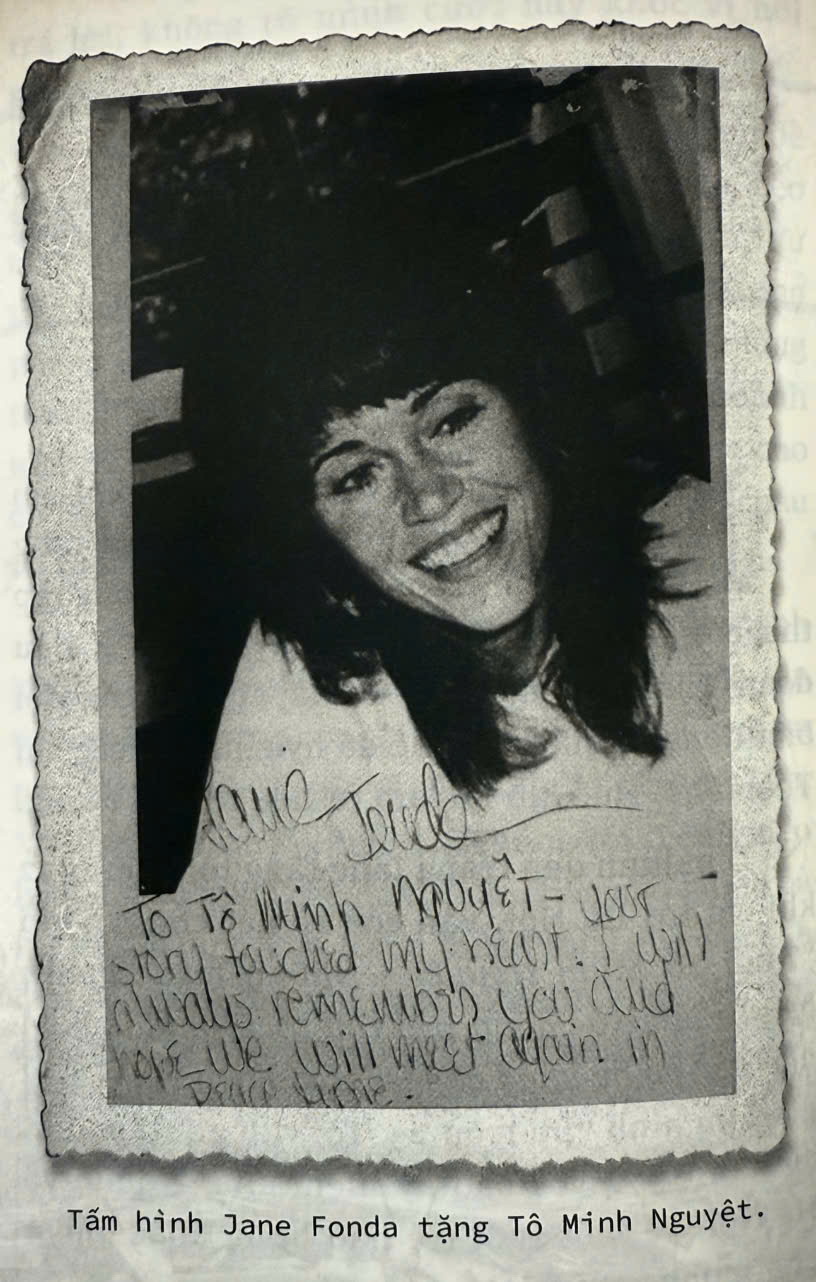 Jane Fonda
To Tô Minh Nguyệt – your
story touched my heart. I will
always remember you and
hope we will meet again in
peace time.
Tấm hình Jane Fonda tặng Tô Minh Nguyệt.